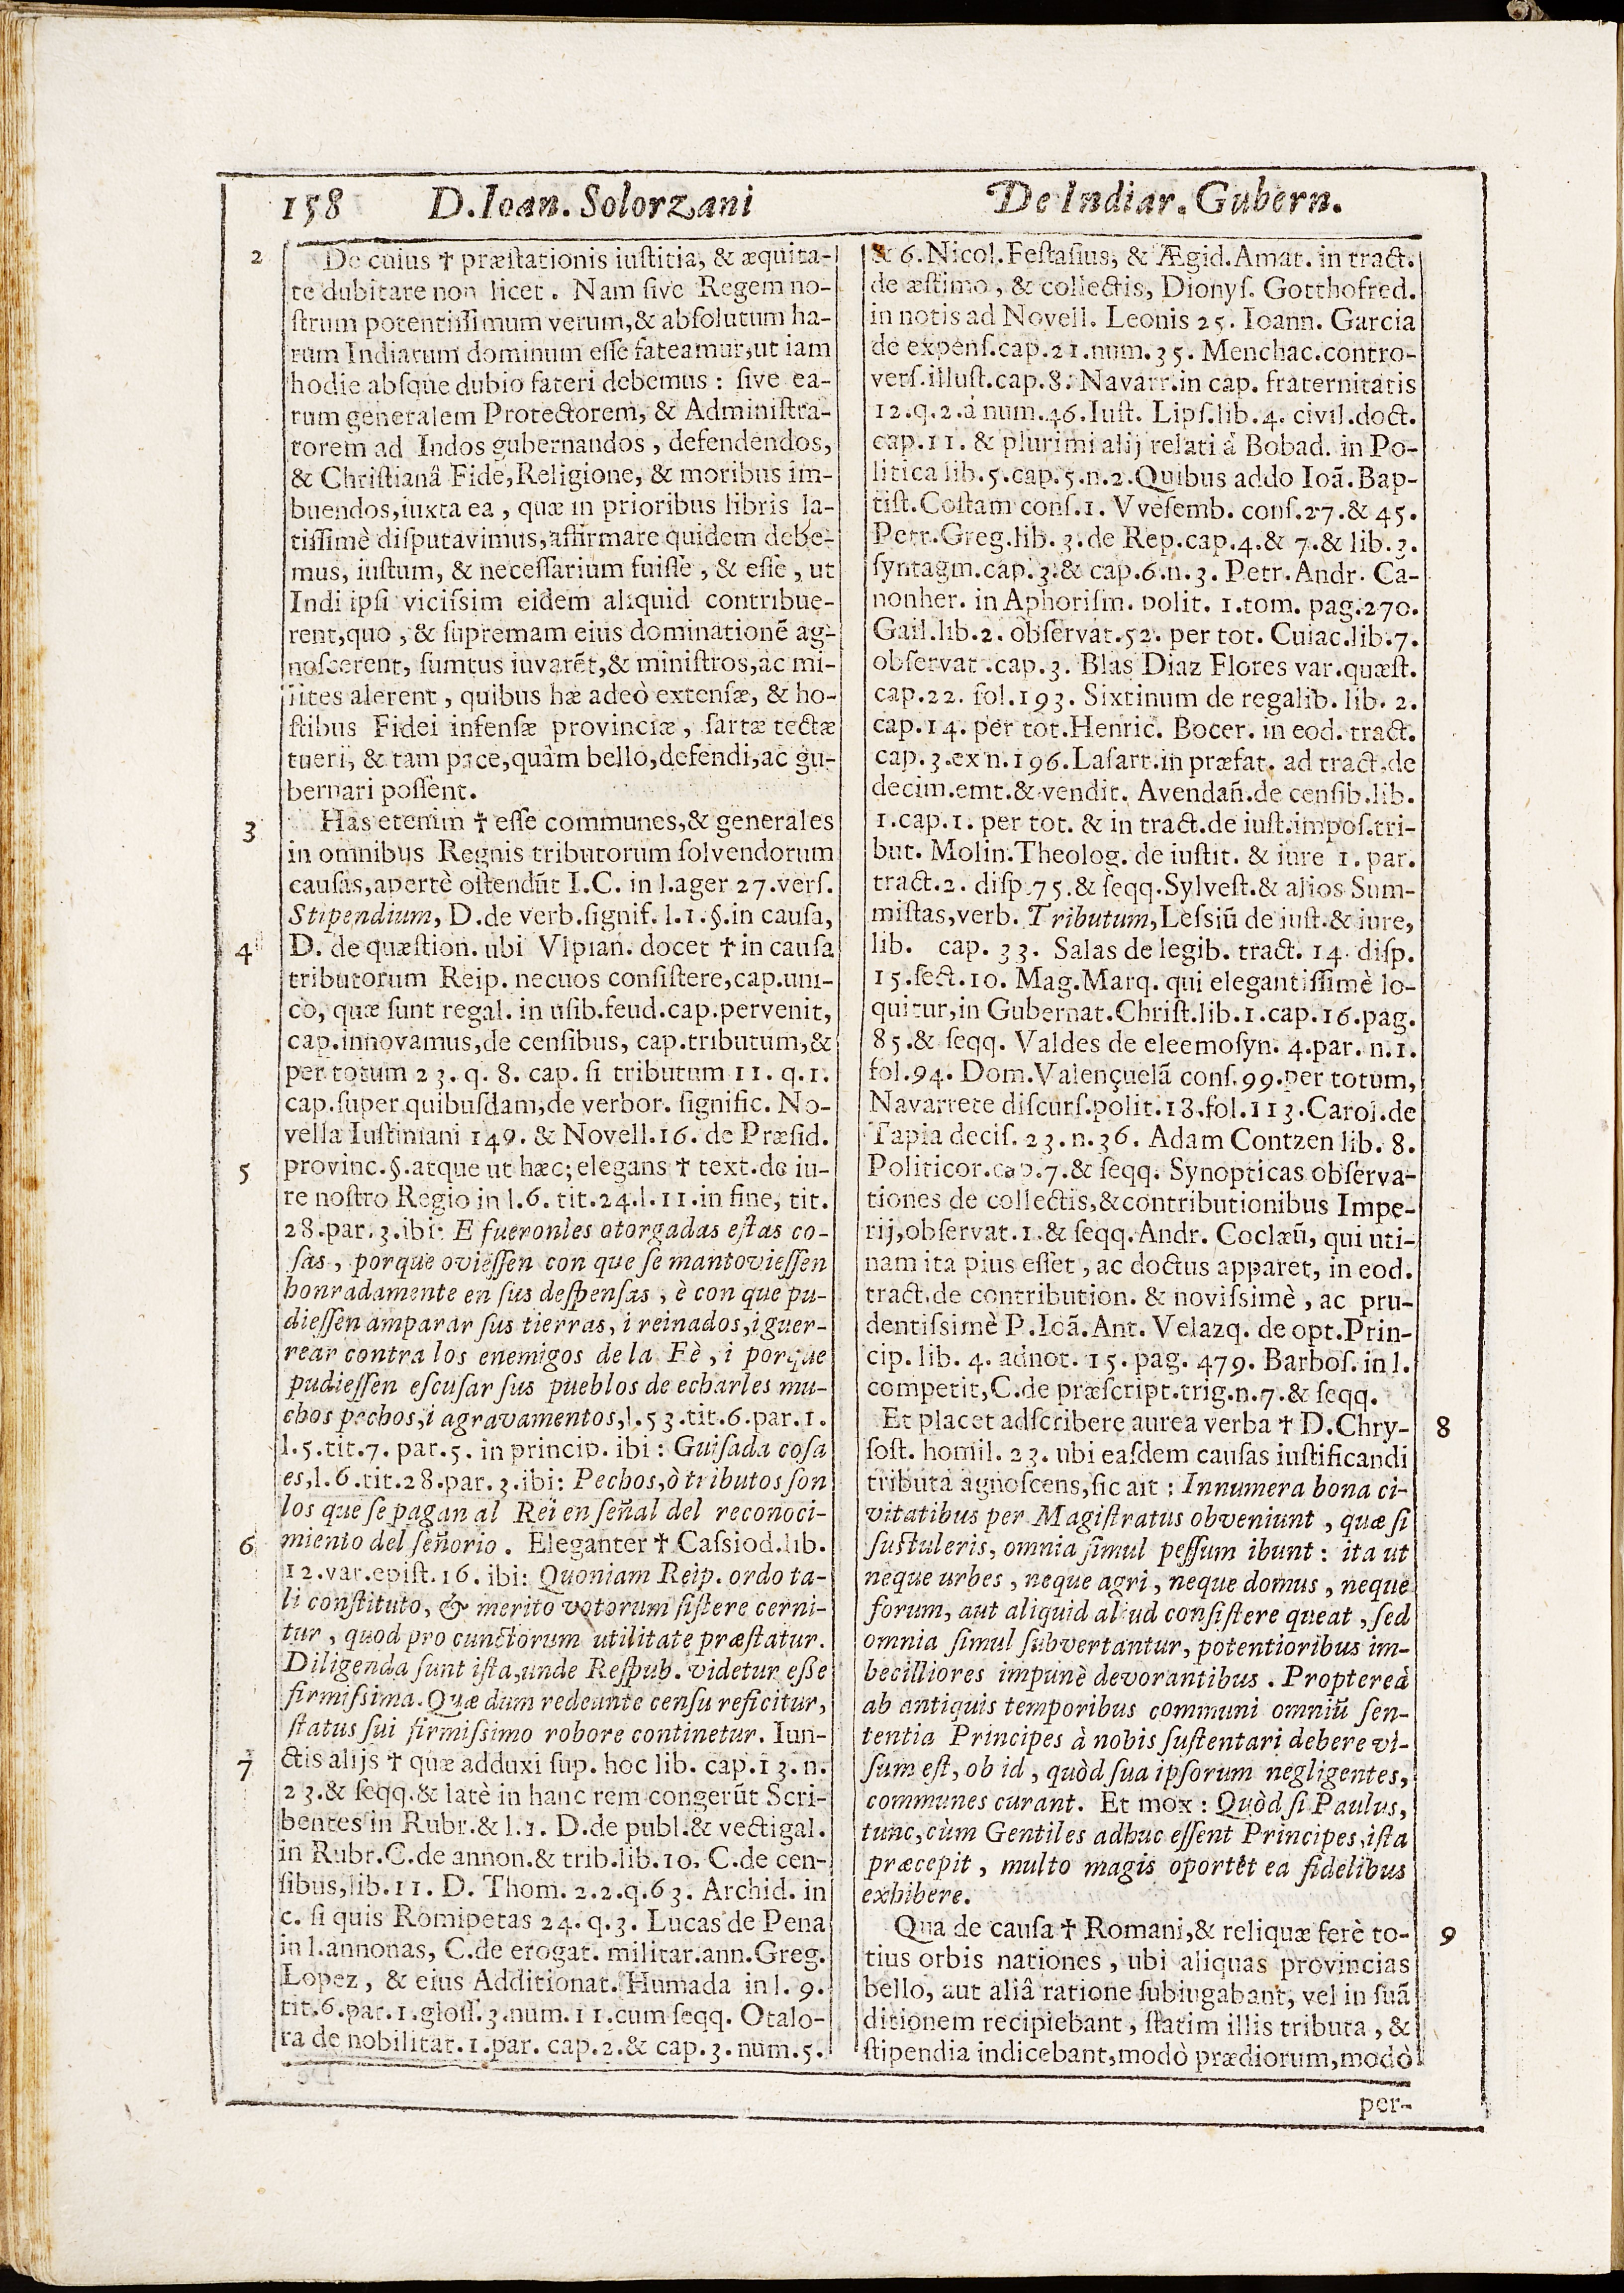 158 D.Ioan. Solorzani De Indiar. Gubern.
2 De cuius † præstationis iustitia, & æquita-
te dubitare non licet. Nam sive Regem no-
strum potentissimum verum,& absolutum ha-
rum Indiarum dominum esse fateamur,ut iam
hodie absque dubio fateri debemus: sive ea-
rum generalem Protectorem, & Administra-
torem ad Indos gubernandos, defendendos,
& Christianâ Fide,Religione, & moribus im-
buendos,iuxta ea, quæ in prioribus libris la-
tissimè disputavimus,affirmare quidem debe-
mus, iustum, & necessarium fuisse, & esse, ut
Indi ipsi vicissim eidem aliquid contribue-
rent,quo, & supremam eius dominationẽ ag-
noscerent, sumtus iuvarẽt,& ministros,ac mi-
lites alerent, quibus hæ adeò extensæ, & ho-
stibus Fidei infensæ provinciæ, sartæ tectæ
tueri, & tam pace,quàm bello,defendi,ac gu-
bernari possent.
3 Has etenim † esse communes,& generales
in omnibus Regnis tributorum solvendorum
causas,apertè ostendũt I.C. in l.ager 27.vers.
Stipendium, D.de verb.signif. l.1.§.in causa,
4 D. de quæstion. ubi Vlpian. docet † in causa
tributorum Reip. necuos consistere,cap.uni-
co, quæ sunt regal. in usib.feud.cap.pervenit,
cap.innovamus,de censibus, cap.tributum,&
per totum 23. q. 8. cap. si tributum 11. q.1.
cap.super quibusdam,de verbor. signific. No-
vella Iustiniani 149. & Novell.16. de Præsid.
5 provinc.§.atque ut hæc; elegans † text.de iu-
re nostro Regio in l.6. tit.24.l.11.in fine, tit.
28.par.3.ibi: E fueronles otorgadas estas co-
sas, porque oviessen con que se mantoviessen
honradamente en sus despensas, è con que pu-
diessen amparar sus tierras, i reinados,i guer-
rear contra los enemigos de la Fè, i porque
pudiessen escusar sus pueblos de echarles mu-
chos pechos,i agravamentos,l.53.tit.6.par.1.
l.5.tit.7. par.5. in princip. ibi: Guisada cosa
es,l.6.tit.28.par.3.ibi: Pechos,ò tributos son
los que se pagan al Rei en señal del reconoci-
6 miento del señorio. Eleganter † Cassiod.lib.
12.var.epist.16. ibi: Quoniam Reip. ordo ta-
li constituto, & merito votorum sistere cerni-
tur, quod pro cunctorum utilitate præstatur.
Diligenda sunt ista,unde Respub. videtur esse
firmissima. Quæ dum redeunte censu reficitur,
status sui firmissimo robore continetur. Iun-
7 ctis alijs † quæ adduxi sup. hoc lib. cap.13.n.
23.& seqq.& latè in hanc rem congerũt Scri-
bentes in Rubr.& l.1. D.de publ.& vectigal.
in Rubr.C.de annon.& trib.lib.10. C.de cen-
sibus,lib.11. D. Thom. 2.2.q.63. Archid. in
c. si quis Romipetas 24. q.3. Lucas de Pena
in l.annonas, C.de erogat. militar.ann.Greg.
Lopez, & eius Additionat. Humada in l. 9.
tit.6.par.1.gloss.3.num.11.cum seqq. Otalo-
ra de nobilitat.1.par. cap.2.& cap.3. num.5.
& 6.Nicol.Festasius, & Ægid.Amat. in tract.
de æstimo, & collectis, Dionys. Gotthofred.
in notis ad Novell. Leonis 25. Ioann. Garcia
de expens.cap.21.num.35. Menchac.contro-
vers.illust.cap.8. Navarr.in cap. fraternitatis
12.q.2.à num.46.Iust. Lips.lib.4. civil.doct.
cap.11. & plurimi alij relati à Bobad. in Po-
litica lib.5.cap.5.n.2.Quibus addo Ioã.Bap-
tist.Costam cons.1. Vvesemb. cons.27.& 45.
Petr.Greg.lib. 3.de Rep.cap.4.& 7.& lib.3.
syntagm.cap.3.& cap.6.n.3. Petr.Andr. Ca-
nonher. in Aphorism. polit. 1.tom. pag.270.
Gail.lib.2. observat.52. per tot. Cuiac.lib.7.
observat.cap.3. Blas Diaz Flores var.quæst.
cap.22. fol.193. Sixtinum de regalib. lib. 2.
cap.14. per tot.Henric. Bocer. in eod. tract.
cap.3.ex n.196.Lasart.in præfat. ad tract.de
decim.emt.& vendit. Avendañ.de censib.lib.
1.cap.1. per tot. & in tract.de iust.impos.tri-
but. Molin.Theolog. de iustit. & iure 1.par.
tract.2. disp.75.& seqq.Sylvest.& alios Sum-
mistas,verb. Tributum,Lessiũ de iust.& iure,
lib. cap. 33. Salas de legib. tract. 14. disp.
15.sect.10. Mag.Marq. qui elegantissimè lo-
quitur,in Gubernat.Christ.lib.1.cap.16.pag.
85.& seqq. Valdes de eleemosyn. 4.par. n.1.
fol.94. Dom.Valençuelã cons.99.per totum,
Navarrete discurs.polit.18.fol.113.Carol.de
Tapia decis. 23.n.36. Adam Contzen lib. 8.
Politicor.cap.7.& seqq. Synopticas observa-
tiones de collectis,&contributionibus Impe-
rij,observat.1.& seqq.Andr. Coclæũ, qui uti-
nam ita pius esset, ac doctus apparet, in eod.
tract.de contribution. & novissimè, ac pru-
dentissimè P.Ioã.Ant. Velazq. de opt.Prin-
cip. lib. 4. adnot. 15. pag. 479. Barbos. in l.
competit,C.de præscript.trig.n.7.& seqq.
Et placet adscribere aurea verba † D.Chry- 8
sost. homil. 23. ubi easdem causas iustificandi
tributa agnoscens,sic ait: Innumera bona ci-
vitatibus per Magistratus obveniunt, quæ si
sustuleris, omnia simul pessum ibunt: ita ut
neque urbes, neque agri, neque domus, neque
forum, aut aliquid aliud consistere queat, sed
omnia simul subvertantur, potentioribus im-
becilliores impunè devorantibus. Propterea
ab antiquis temporibus communi omniũ sen-
tentia Principes à nobis sustentari debere vi-
sum est, ob id, quòd sua ipsorum negligentes,
communes curant. Et mox: Quòd si Paulus,
tunc,cùm Gentiles adhuc essent Principes,ista
præcepit, multo magis oportet ea fidelibus
exhibere.
Qua de causa † Romani,& reliquæ ferè to- 9
tius orbis nationes, ubi aliquas provincias
bello, aut aliâ ratione subiugabant, vel in suã
ditionem recipiebant, statim illis tributa, &
stipendia indicebant,modò prædiorum,modò
per-